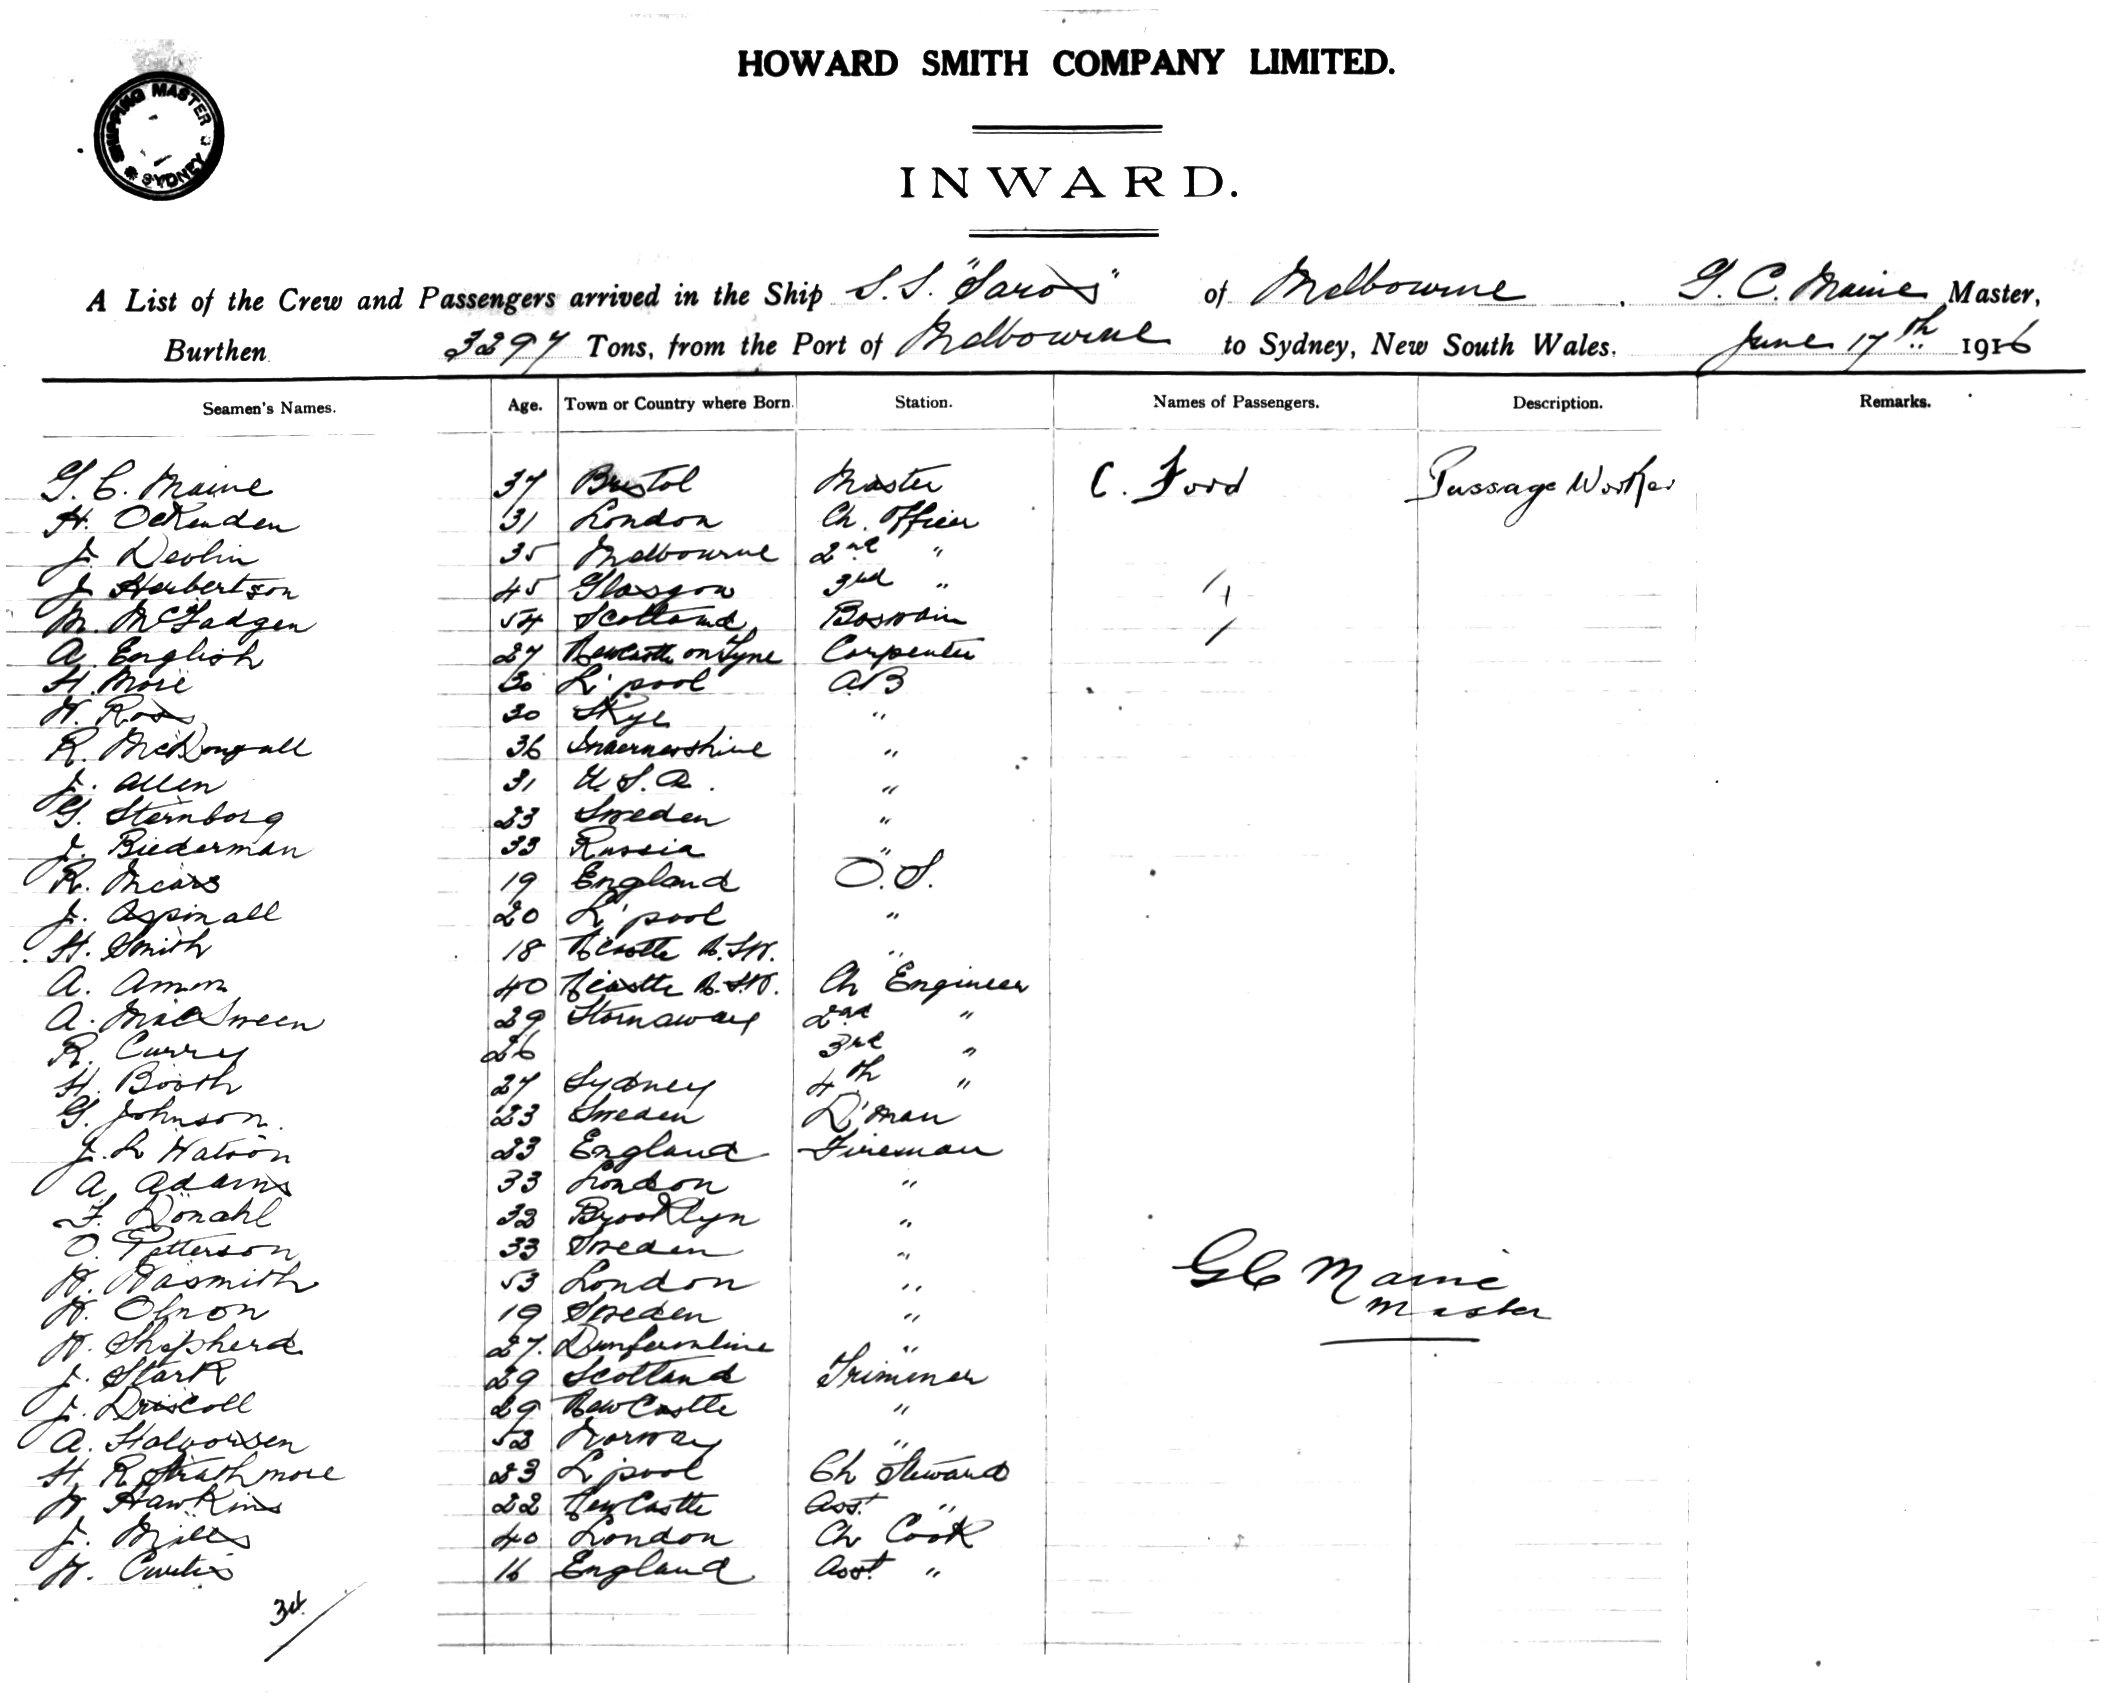 HOWARD SMITH COMPANY LIMITED.
SHIPPING MASTER SYDNEY
INWARD.
A List of the Crew and Passengers arrived in the Ship S.S. "Saros" of Melbourne, G. C. Maine Master,
Burthen 3297 Tons, from the Port of Melbourne to Sydney, New South Wales. June 17th 1916
Seamen's Names. Age. Town or Country where Born. Station. Names of Passengers. Description. Remarks.
G. C. Maine 37 Bristol Master C. Ford Passage Worker
H. Ockenden 31 London Ch. Officer
J. Devlin 35 Melbourne 2nd "
J. Herbertson 45 Glasgow 3rd "
M. McFadgen 54 Scotland Boswain
A. English 27 Newcastle on Tyne Carpenter
H. More 30 L'pool AB
W. Ross 30 Skye "
R. McDougall 36 Invernesshire "
J. Allen 31 U.S.A. "
G. Sternborg 23 Sweden "
J. Biederman 33 Russia "
R. Mears 19 England O.S.
J. Aspinall 20 L'pool "
H. Smith 18 N'castle N.S.W. "
A. Amm 40 N'castle N.S.W. Ch Engineer
A. MacSween 29 Stornaway 2nd "
R. Curry 26 3rd "
H. Booth 27 Sydney 4th "
G. Johnson. 23 Sweden D'man
J. L Watson 23 England Fireman
A. Adams 33 London "
F. 32 Brooklyn "
O. Petterson 33 Sweden "
W. Nasmith 53 London "
W. Olnon 19 Sweden "
W. Shepherd 27. Dunfermline "
J. Stark 29 Scotland Trimmer
J. Driscoll 29 NewCastle "
A. Halvorsen 52 Norway "
H. R Strathmore 23 L'pool Ch Steward
W Hawkins 22 NewCastle Asst "
J. Mills 40 London Ch Cook
W. Curtis 16 England Asst "
G C Maine
Master
34